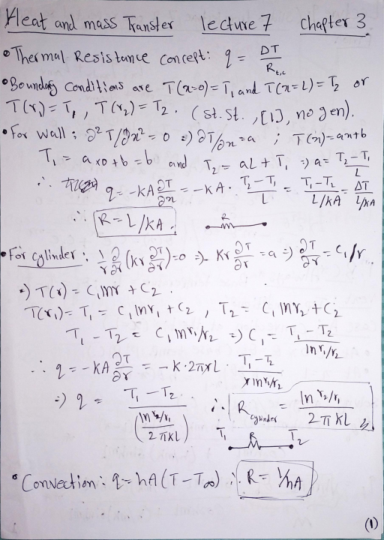 Heat and mass Transfer lecture 7 chapter 3
• Thermal Resistance concept: q = ΔT / R_t,c
• Boundary Conditions are T(x=0)=T₁ and T(x=L)=T₂ or
T(r₁)=T₁, T(r₂)=T₂. (st.st., [1], no gen).
• For wall: ∂²T/∂x²=0 ⇒ ∂T/∂x=a ; T(x)=ax+b
T₁ = a×0+b=b and T₂=aL+T₁ ⇒ a=(T₂-T₁)/L
∴ q=-kA ∂T/∂x = -kA. (T₂-T₁)/L = (T₁-T₂)/(L/kA) = ΔT/(L/kA)
∴ R=L/kA. R
• For cylinder: 1/r ∂/∂r (Kr ∂T/∂r)=0 ⇒ Kr ∂T/∂r = a ⇒ ∂T/∂r = C₁/r
⇒ T(r) = C₁lnr + C₂.
T(r₁) = T₁ = C₁lnr₁ + C₂, T₂ = C₁lnr₂ + C₂
T₁ - T₂ = C₁ ln r₁/r₂ ⇒ C₁ = (T₁-T₂)/(ln r₁/r₂)
∴ q = -kA ∂T/∂r = -K.2πrL. (T₁-T₂)/(r ln r₁/r₂)
⇒ q = (T₁-T₂)/((ln r₂/r₁)/(2πKL)) ∴ R_cylinder = (ln r₂/r₁)/(2πKL)
T₁ R T₂
• Convection: q=hA(T-T∞) ∴ R=1/hA
(1)